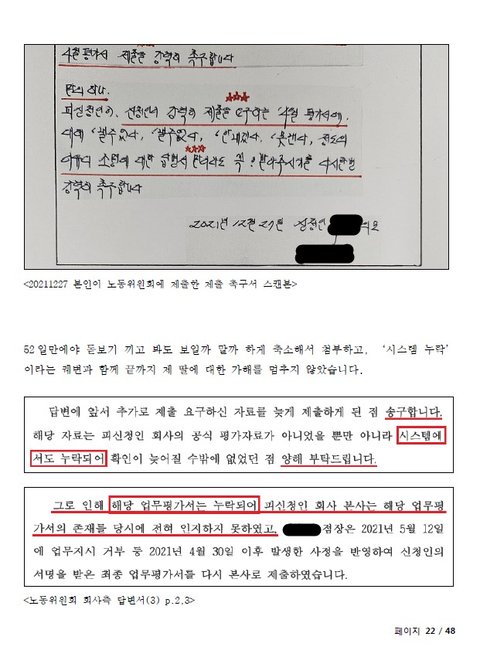 4월 평가서 제출을 강력히 촉구합니다
피신청인이, 신청인이 강력히 제출을 요구하는 '4월 평가서'에
대해 '낼 수 없다', '낼수없다', '안내겠다', '못낸다',
강력히 촉구합니다
2021년 12월 27일 신청인
<20211227 본인이 노동위원회에 제출한 제출 촉구서 스캔본>
52일만에야 돋보기 끼고 봐도 보일까 말까 하게 축소해서 첨부하고, '시스템 누락'
이라는 궤변과 함께 끝까지 제 딸에 대한 가해를 멈추지 않았습니다.
답변에 앞서 추가로 제출 요구하신 자료를 늦게 제출하게 된 점 송구합니다.
해당 자료는 피신청인 회사의 공식 평가자료가 아니었을 뿐만 아니라 시스템에
서도 누락되어 확인이 늦어질 수밖에 없었던 점 양해 부탁드립니다.
그로 인해 해당 업무평가서는 누락되어 피신청인 회사 본사는 해당 업무평
가서의 존재를 당시에 전혀 인지하지 못하였고, 점장은 2021년 5월 12일
에 업무지시 거부 등 2021년 4월 30일 이후 발생한 사정을 반영하여 신청인의
서명을 받은 최종 업무평가서를 다시 본사로 제출하였습니다.
<노동위원회 회사측 답변서(3) p.2,3>
페이지 22 / 48